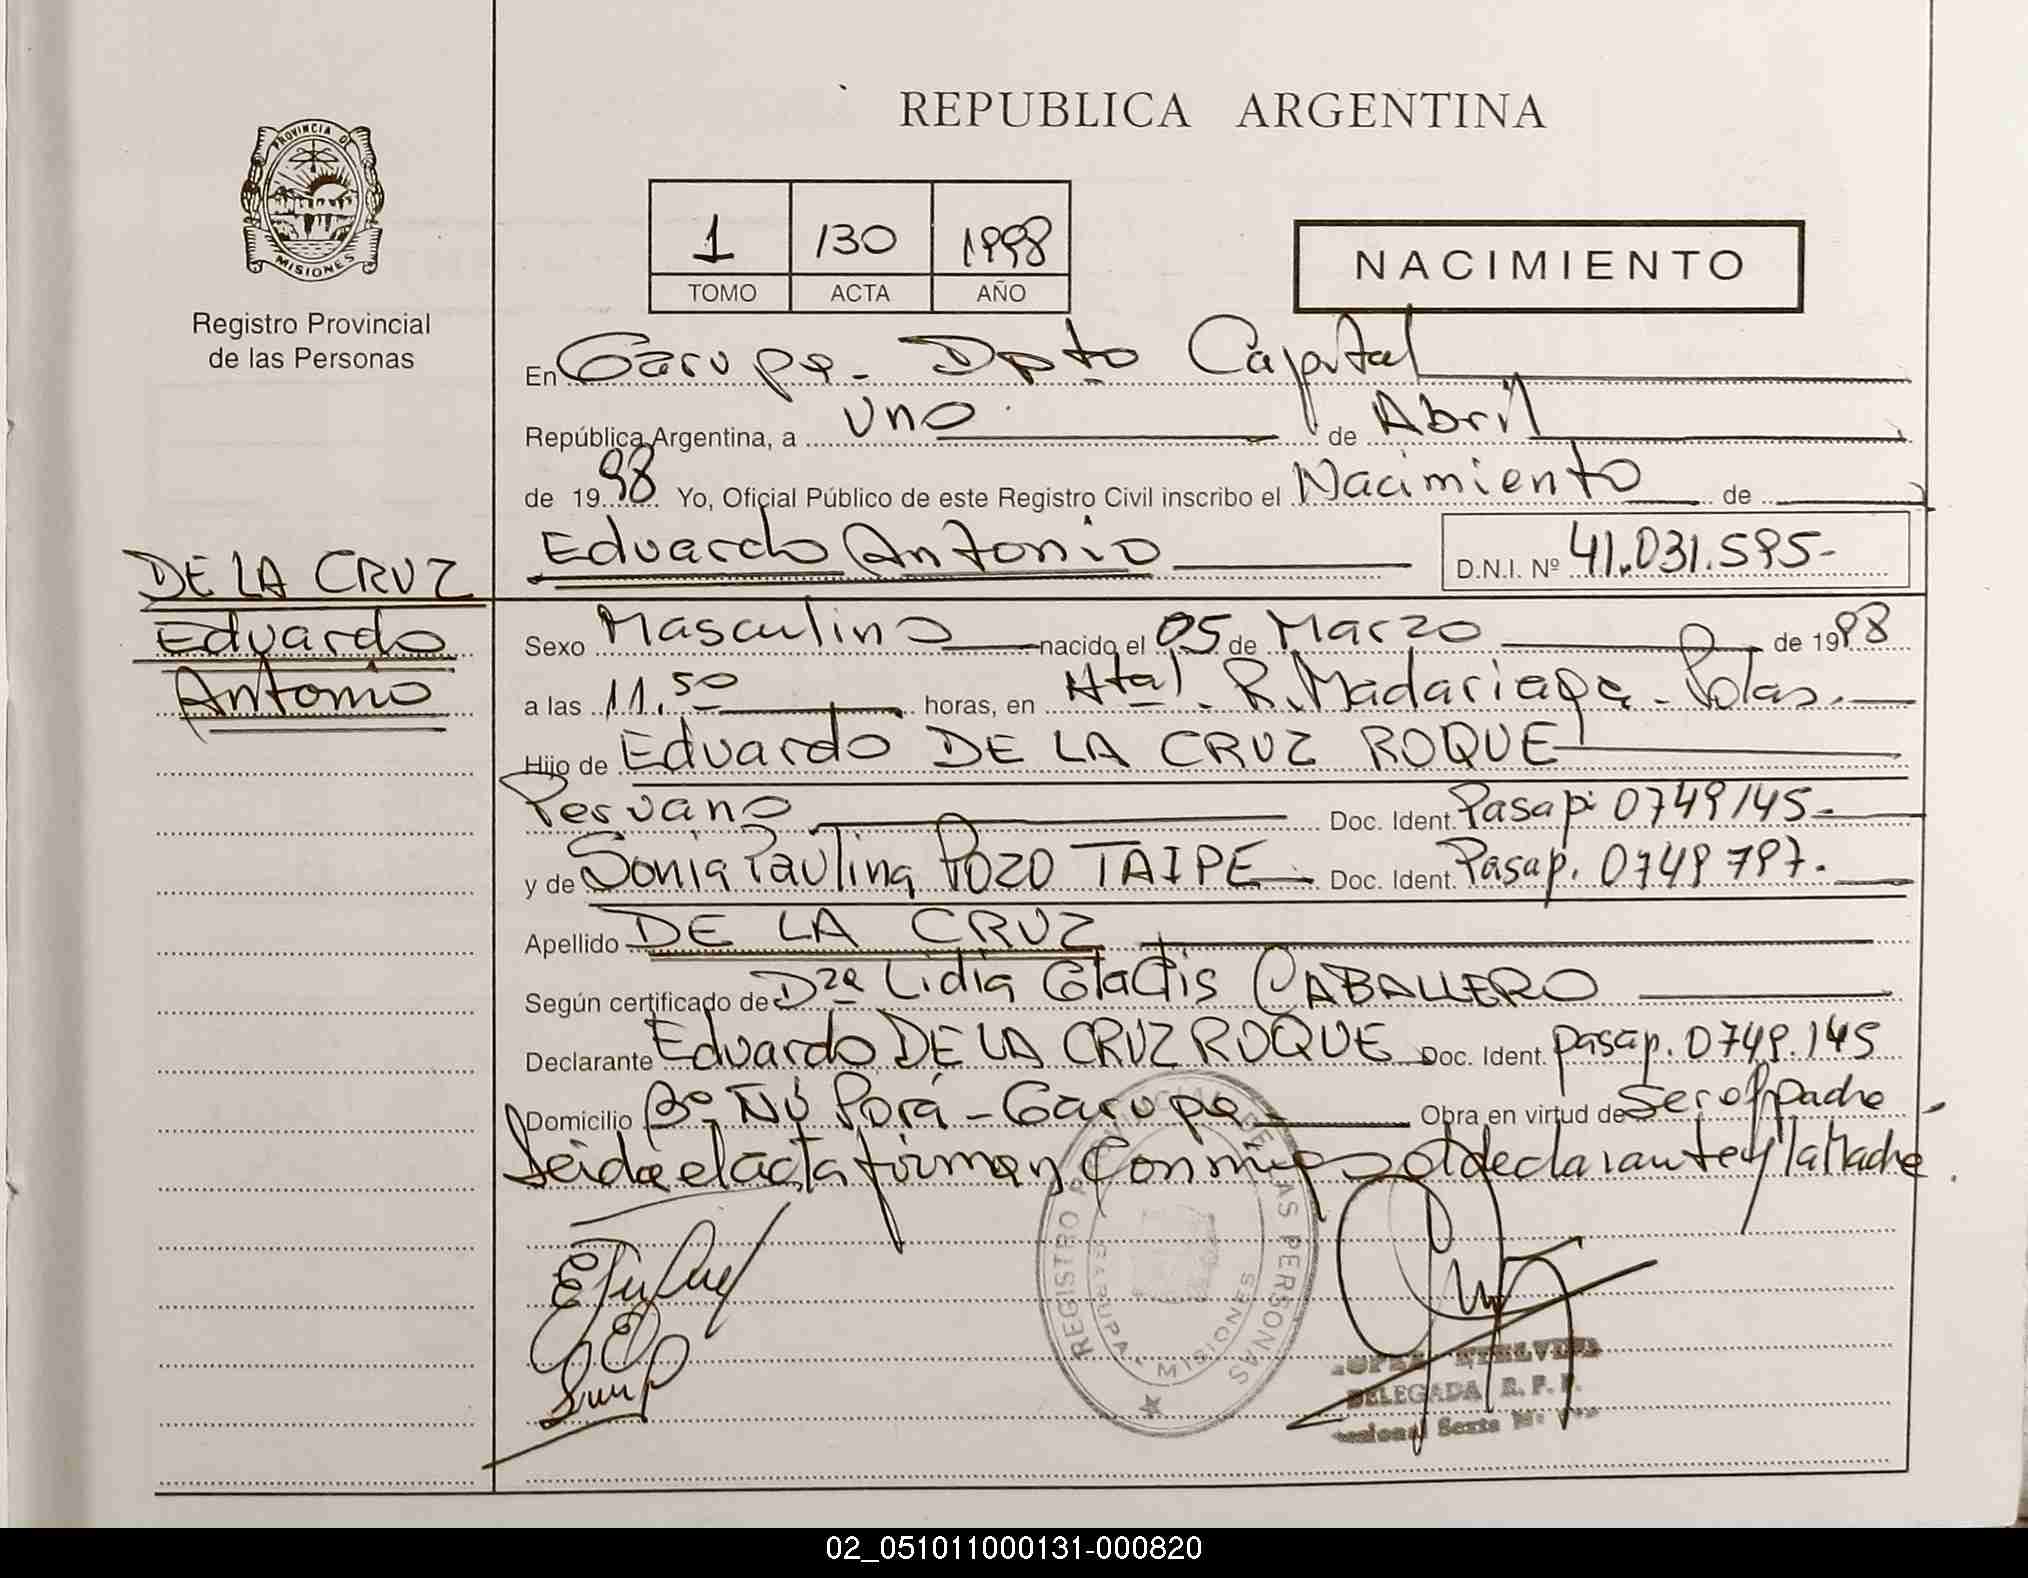 REPUBLICA ARGENTINA
PROVINCIA DE
MISIONES
Registro Provincial
de las Personas
1 130 1998
TOMO ACTA AÑO
NACIMIENTO
En Garupa - Dpto Capital
República Argentina, a uno de Abril
de 1998 Yo, Oficial Público de este Registro Civil inscribo el Nacimiento de
Eduardo Antonio D.N.I. Nº 41.031.595-
DE LA CRUZ
Eduardo
Antonio
Sexo Masculino nacido el 05 de Marzo de 1998
a las 11.50 horas, en Htal. R. Madariaga - Pdas.
Hijo de Eduardo DE LA CRUZ ROQUE
Peruano Doc. Ident. Pasap. 0749145-
y de Sonia Paulina POZO TAIPE Doc. Ident. Pasap. 0749797.
Apellido DE LA CRUZ
Según certificado de Dra Lidia Gladis CABALLERO
Declarante Eduardo DE LA CRUZ ROQUE Doc. Ident. pasap. 0749.145
Domicilio Bº Ñú Porá - Garupa - Obra en virtud de ser el padre
Leida el acta firman conmigo el declarante y la Madre.
REGISTRO PROVINCIAL DE LAS PERSONAS
GARUPA - MISIONES
DELEGADA R. P. P.
02_051011000131-000820